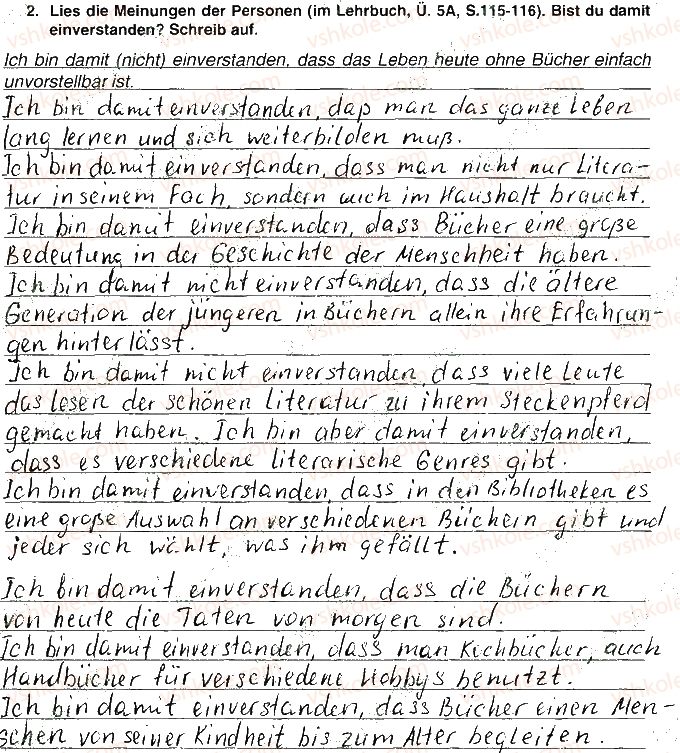 2. Lies die Meinungen der Personen (im Lehrbuch, Ü. 5A, S.115-116). Bist du damit
einverstanden? Schreib auf.
Ich bin damit (nicht) einverstanden, dass das Leben heute ohne Bücher einfach
unvorstellbar ist.
Ich bin damit einverstanden, daß man das ganze Leben
lang lernen und sich weiterbilden muß.
Ich bin damit einverstanden, dass man nicht nur Litera-
tur in seinem Fach, sondern auch im Haushalt braucht.
Ich bin damit einverstanden, dass Bücher eine große
Bedeutung in der Geschichte der Menschheit haben.
Ich bin damit nicht einverstanden, dass die ältere
Generation der jüngeren in Büchern allein ihre Erfahrun-
gen hinterlässt.
Ich bin damit nicht einverstanden, dass viele Leute
das lesen der schönen Literatur zu ihrem Steckenpferd
gemacht haben. Ich bin aber damit einverstanden,
dass es verschiedene literarische Genres gibt.
Ich bin damit einverstanden, dass in den Bibliotheken es
eine große Auswahl an verschiedenen Büchern gibt und
jeder sich wählt, was ihm gefällt.
Ich bin damit einverstanden, dass die Büchern
von heute die Taten von morgen sind.
Ich bin damit einverstanden, dass man Kochbücher, auch
Handbücher für verschiedene Hobbys benutzt.
Ich bin damit einverstanden, dass Bücher einen Men-
schen von seiner Kindheit bis zum Alter begleiten.